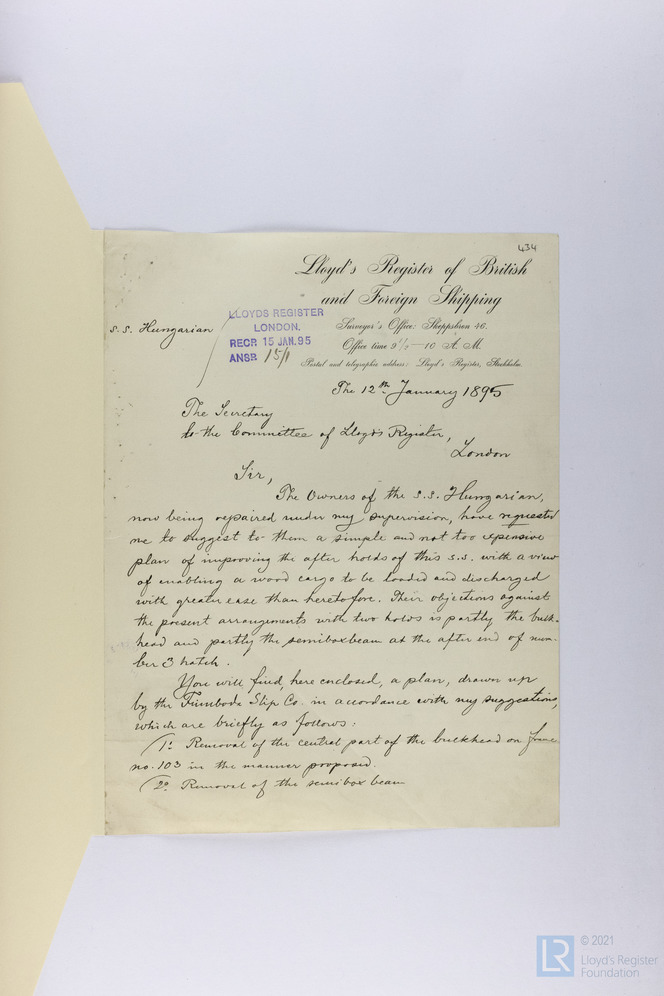 434
Lloyd's Register of British
and Foreign Shipping
Surveyor's Office: Skeppsbron 46.
Office time 9 1/2 — 10 A. M.
Postal and telegraphic address: Lloyd's Register, Stockholm.
S.S. Hungarian
LLOYDS REGISTER
LONDON.
RECD 15 JAN. 95
ANSD 15/1
The 12th January 1895
The Secretary
to the Committee of Lloyd's Register,
London
Sir,
The Owners of the S.S. Hungarian,
now being repaired under my supervision, have requested
me to suggest to them a simple and not too expensive
plan of improving the after holds of this S.S. with a view
of enabling a wood cargo to be loaded and discharged
with greater ease than heretofore. Their objections against
the present arrangements with two holds is partly the bulk-
head and partly the semiboxbeam at the after end of num-
ber 3 hatch.
You will find, here enclosed, a plan, drawn up
by the Finnboda Slip Co in accordance with my suggestions,
which are briefly as follows:
1o Removal of the central part of the bulkhead on frame
no. 103 in the manner proposed.
2o Removal of the semibox beam
LR
© 2021
Lloyd's Register
Foundation